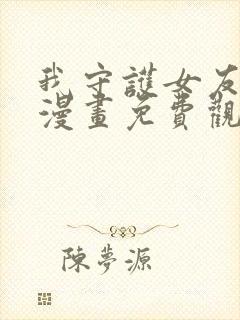 我守護女友
漫畫免費觀
陳夢源